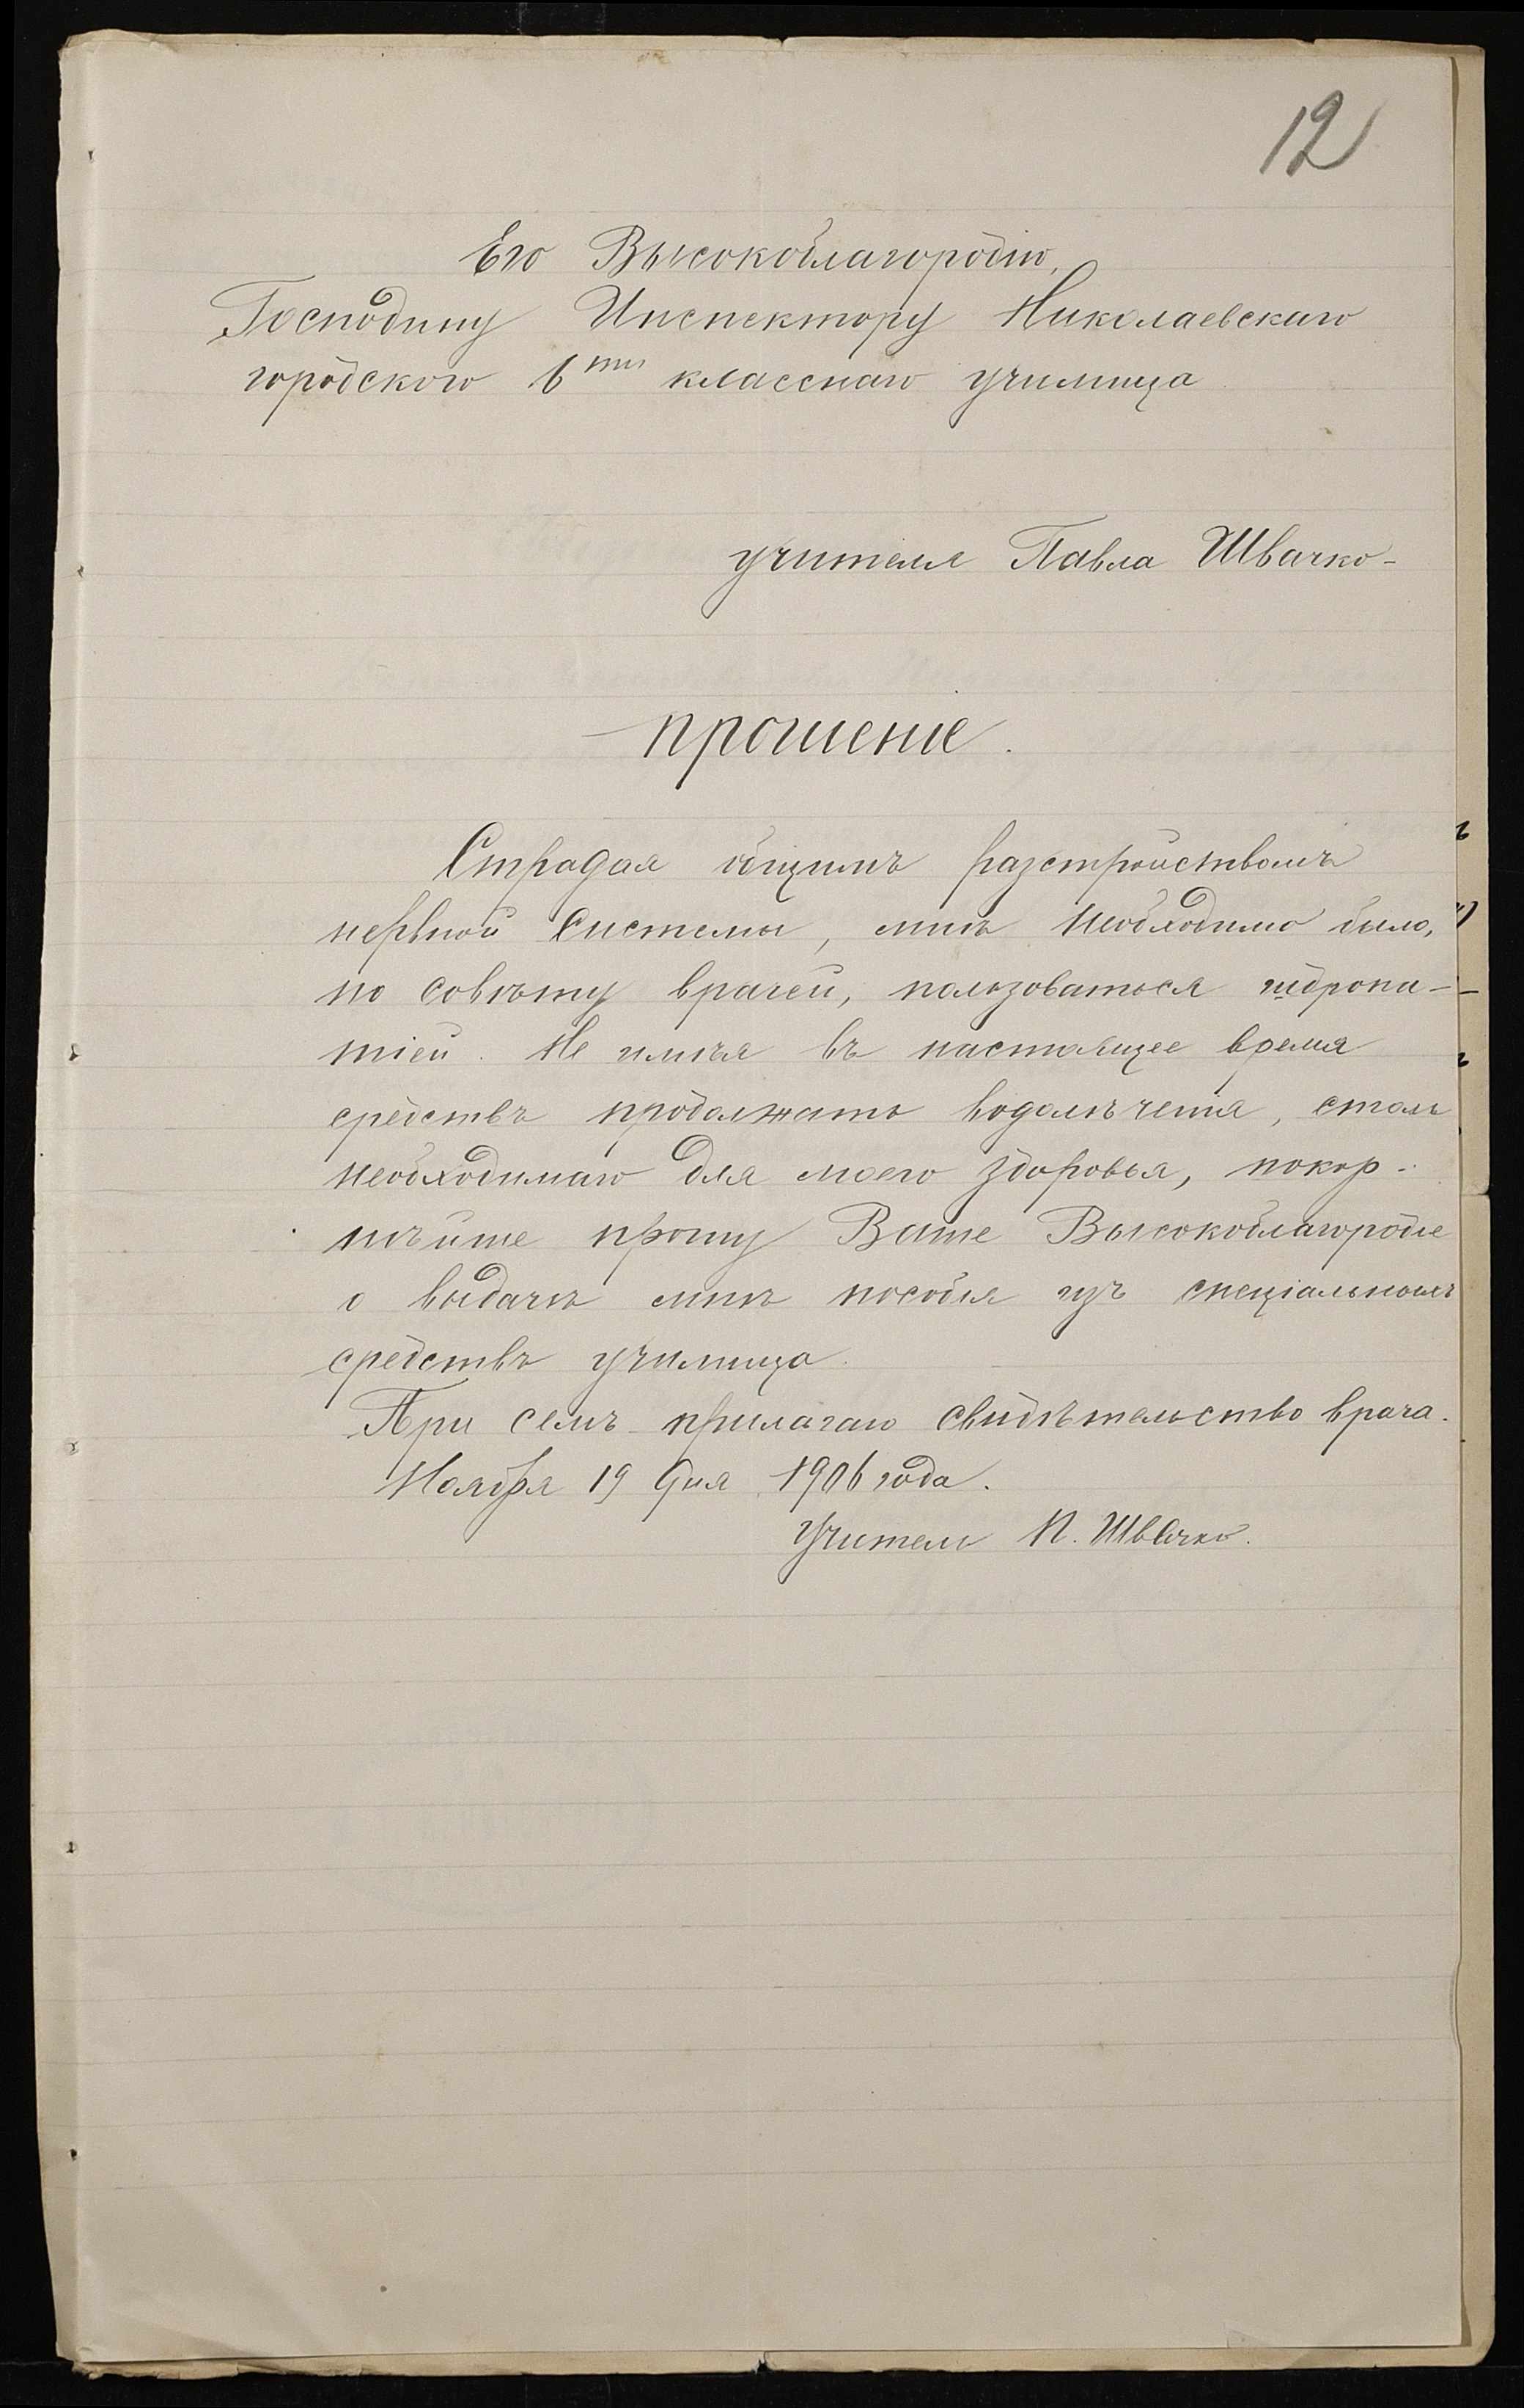 12
Его Высокоблагородію,
Господину Инспектору Николаевскаго
городского 6ти класснаго училища
учителя Павла Швачко-
прошеніе.
Страдая общимъ разстройствомъ
нервной системы, мнѣ необходимо было,
по совѣту врачей, пользоваться гидропа-
тіей. Не имѣя въ настоящее время
средствъ продолжать водолѣченія, столь
необходимаго для моего здоровья, покор-
нѣйше прошу Ваше Высокоблагородіе
о выдачѣ мнѣ пособія изъ спеціальныхъ
средствъ училища.
При семъ прилагаю свидѣтельство врача.
Ноября 19 дня 1906 года.
Учитель П. Швачко.